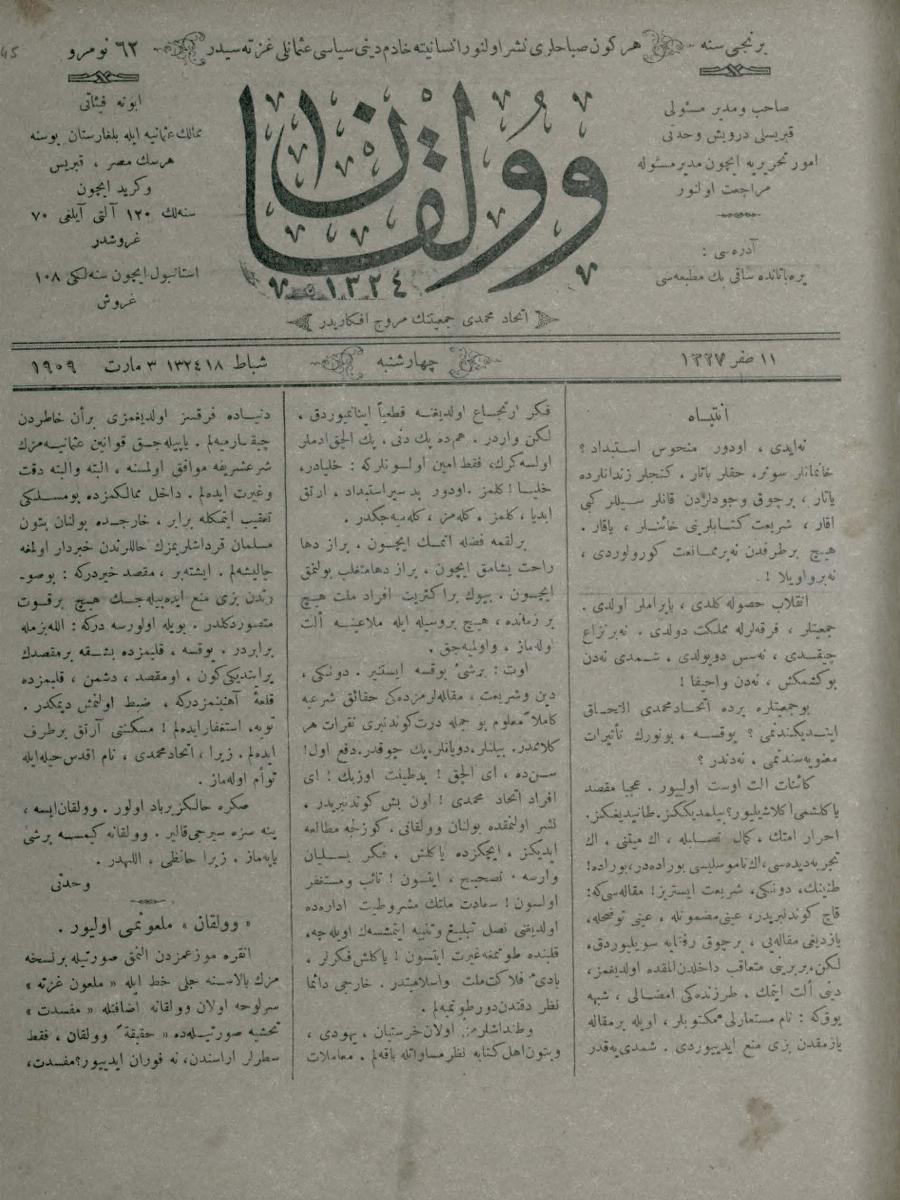 برنجی سنه
هرکون صباحلری نشر اولنور انسانیته خادم دینی سیاسی عثمانلی غزته سیدر
٦٢ نومرو
صاحب و مدیر مسئولی
قبریسلی درویش وحدتی
امور تحریریه ایچون مدیر مسئوله
مراجعت اولنور
آدره سی :
یره باتانده ساقی بك مطبعه سی
وولقان
١٣٢٤
اتحاد محمدی جمعیتنك مروج افکاریدر
ابونه فیئاتی
ممالك عثمانیه ایله بلغارستان بوسنه
هرسك مصر ، قبریس
وكرید ایچون
سنه لك ١٢٠ آلتی آیلغی ٧٠
غروشدر
استانبول ایچون سنه لکی ١٠٨
غروش
١١ صفر ١٣٢٧
چهارشنبه
١٨ شباط ١٣٢٤ ٣ مارت ١٩٠٩
انتباه
نه ایدی ، اودور منحوس استبداد ؟
خانمانلر سونر، حقلر باتار . کنجلر زندانلرده
یاتار ، برچوق وجودلردن قانلر سیللر کبی
آقار ، شریعت کتابلرینی خائنلر ، یاقار .
هیچ برطرفدن نه برممانعت کورولوردی ،
نه برواویلا ! .
انقلاب حصوله کلدی ، بایراملر اولدی .
جمعیتلر ، فرقه لرله مملکت دولدی . نه برنزاع
چیقدی ، نه سس دویولدی ، شمدی نه دن
بوکشمکش ، نه دن واحیفا !
بوجمعیتلره برده اتحاد محمدی التحاق
ایتدیکندنمی ؟ یوقسه ، بونورك تأثیرات
معنویه سندنمی . نه دندر ؟
کائنات الت اوست اولیور . عجبا مقصد
یاکلشمی اکلاشیلیور؟ بیلمدیککز. طانیدیغکز.
احرار امتك ، کمال تصابله ، اك متینی . اك
تجربه دیده سی، اك ناموسلیسی بوراده در، بوراده!
طنینك، دونکی، شریعت ایسترز! مقاله سی که:
قاچ کوندنبریدر، عینی مضمونله ، عینی توضحله،
یازدیغی مقاله یی ، برچوق رفقایه سویلیوردق.
لکن، بربرینی متعاقب داخلدن المقده اولدیغمز،
دینی آلت ایتمك . طرزنده کی امضالی ، شبهه
یوق که : نام مستعارلی مکتوبلر ، اویله برمقاله
یازمقدن بزی منع ایدییوردی . شمدی یه قدر
فکر ارتجاع اولدیغنه قطعیاً اینانمیوردق ،
لکن واردر . هم ده پك دنی ، پك آلچق ادملر
اولسه کرك، فقط امین اولسونلرکه : خلیادر،
خلیا ! کلمز . اودور پر سیر استبداد ، آرتق
ابدیا ، کلمز . کله مز ، کله میه جکدر .
بر لقمه فضله آتمق ایچون . براز دها
راحت یشامق ایچون ، براز دها متغلب بولنمق
ایچون . بیوك براکثریت افراد ملت هیچ
بر زمانده ، هیچ بروسیله ایله ملاعینه آلت
اوله ماز ، واولمیه جق .
اوت : برشیٔ یوقسه ایستنیر . دونکی ،
دین وشریعت ، مقاله لرمزده کی حقائق شرعیه
کاملاً معلوم بو جمله درت کوندنبری تقرات هر
کلاندر. بیلنلر، دویانلر، پك چوقدر. دفع اول!
سن ده ، ای آلچق ! بدطینت اوزبك ! ای
افراد اتحاد محمدی ! اون بش کوندنبریدر .
نشر اولنمقده بولنان وولقانی ، کوزلجه مطالعه
ایدیکز ، ایچکزده یاکلش . فکر بسلیان
وارسه . تصحیح ، ایتسون ! تائب ومستغفر
اولسون ! سعادت ملتك مشروطیت اداره ده
اولدیغنی نصل تبلیغ وتنبیه ایتمشسه ك اویله جه،
قلبنده طوتمغه غیرت ایتسون ! یاکلش فکرلر .
بادیٔ فلاکت ملت واسلامیتدر . خارجی دائما
نظر دقتدن دور طوتمیه لم .
وطنداشلرمز اولان خرستیان ، یهودی ،
وبتون اهل کتابه نظر مساواتله باقه لم . معاملات
دنیاده فرقسز اولدیغمزی برآن خاطردن
چیقارمیه لم . یاپیله جق قوانین عثمانیه مزك
شرع شریفه موافق اولمسنه ، البته والبته دقت
وغیرت ایده لم . داخل ممالکمزده بومسلکی
تعقیب ایتمکله برابر ، خارجده بولنان بتون
مسلمان قرداشلریمزك حاللرندن خبردار اولمغه
چالیشه لم . ایشته بر ، مقصد خیردرکه : بوصو-
رتدن بزی منع ایده بیله جك هیچ برقوت
متصور دکلدر. بویله اولورسه درکه : الله بزمله
برابردر . یوقسه ، قلبمزده بشقه برمقصدك
یراتدیکی کون ، اومقصد ، دشمن ، قلبمزده
قلعهٔ آهنینمزدرکه ، ضبط اولنمش دیمکدر .
توبه، استغفار ایده لم ! مسکنتی آرتق برطرف
ایده لم . زیرا ، اتحاد محمدی ، نام اقدس حیله ایله
توأم اوله ماز .
صکره حالکز برباد اولور . وولقان ایسه ،
ینه سزه سیرجی قالیر . وولقانه کیمسه برشی
یاپه ماز . زیرا حافظی . اللهدر .
وحدتی
« وولقان » ملعونمی اولیور .
انقره موزعمزدن آلنمق صورتیله برنسخه
مزك بالاسنه جلی خط ایله « ملعون غزته »
سرلوحه اولان وولقانه اضافتله « مفسدت »
تحشیه صورتیله ده « حقیقةً وولقان . فقط
سطرلر اراسندن ، نه فوران ایدییور؟ مفسدت،